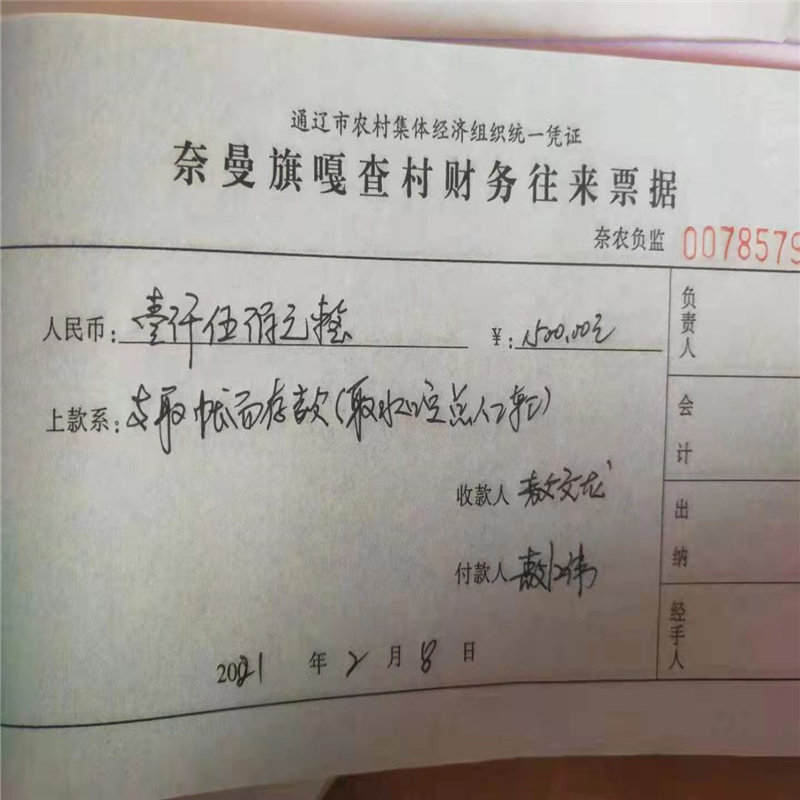 通辽市农村集体经济组织统一凭证
奈曼旗嘎查村财务往来票据
奈农负监 0078579
人民币: 壹仟伍佰元整 ¥: 1500.00元
上款系: 支取帐面存款(取水口定点人工)
收款人 敖文龙
付款人 敖
2021 年 2 月 8 日
负责人
会计
出纳
经手人